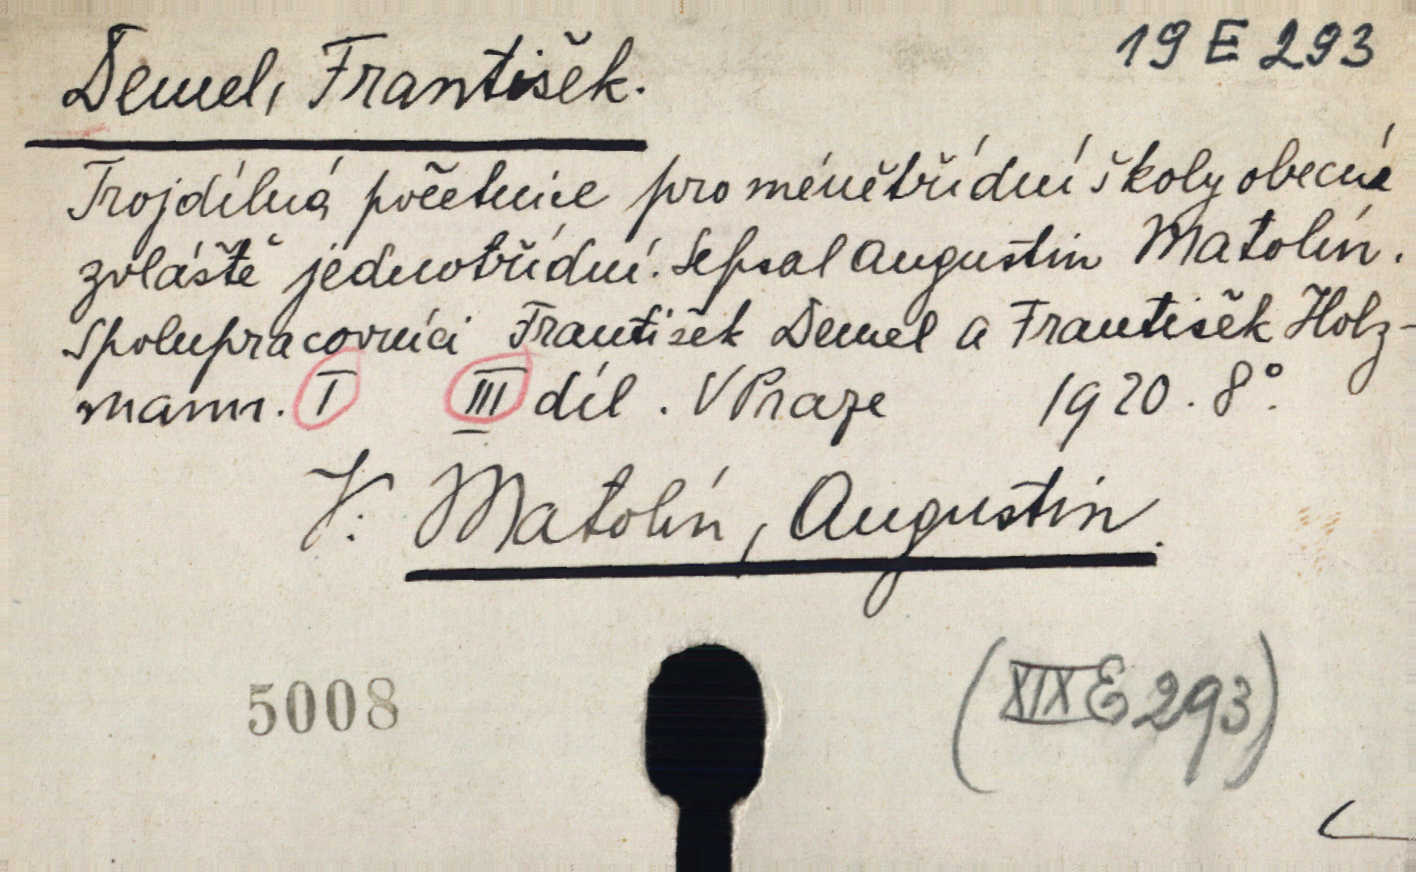 19 E 293
Demel, František.
Trojdílná početnice pro ménětřídní školy obecné
zvláště jednotřídní. Sepsal Augustin Matolín.
Spolupracovníci František Demel a František Holz-
mann. I III díl. V Praze 1920. 8°.
V. Matolín, Augustin.
5008
(XIX E 293)